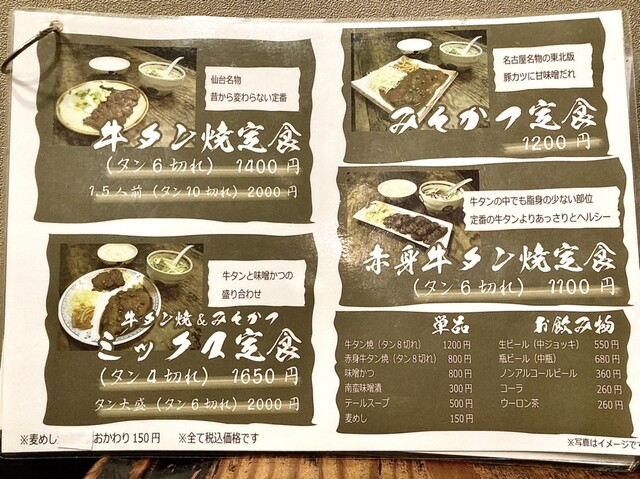 仙台名物
昔から変わらない定番
牛タン焼定食
(タン6切れ) 1400円
1.5人前(タン10切れ) 2000円
牛タンと味噌かつの
盛り合わせ
牛タン焼&みそかつ
ミックス定食
(タン4切れ) 1650円
タン大盛(タン6切れ) 2000円
名古屋名物の東北版
豚カツに甘味噌だれ
みそかつ定食
1200円
牛タンの中でも脂身の少ない部位
定番の牛タンよりあっさりとヘルシー
赤身牛タン焼定食
(タン6切れ) 1100円
単品
牛タン焼(タン8切れ) 1200円
赤身牛タン焼(タン8切れ) 800円
味噌かつ 800円
南蛮味噌漬 300円
テールスープ 500円
麦めし 150円
お飲み物
生ビール(中ジョッキ) 550円
瓶ビール(中瓶) 680円
ノンアルコールビール 360円
コーラ 260円
ウーロン茶 260円
※麦めし おかわり150円 ※全て税込価格です
※写真はイメージです